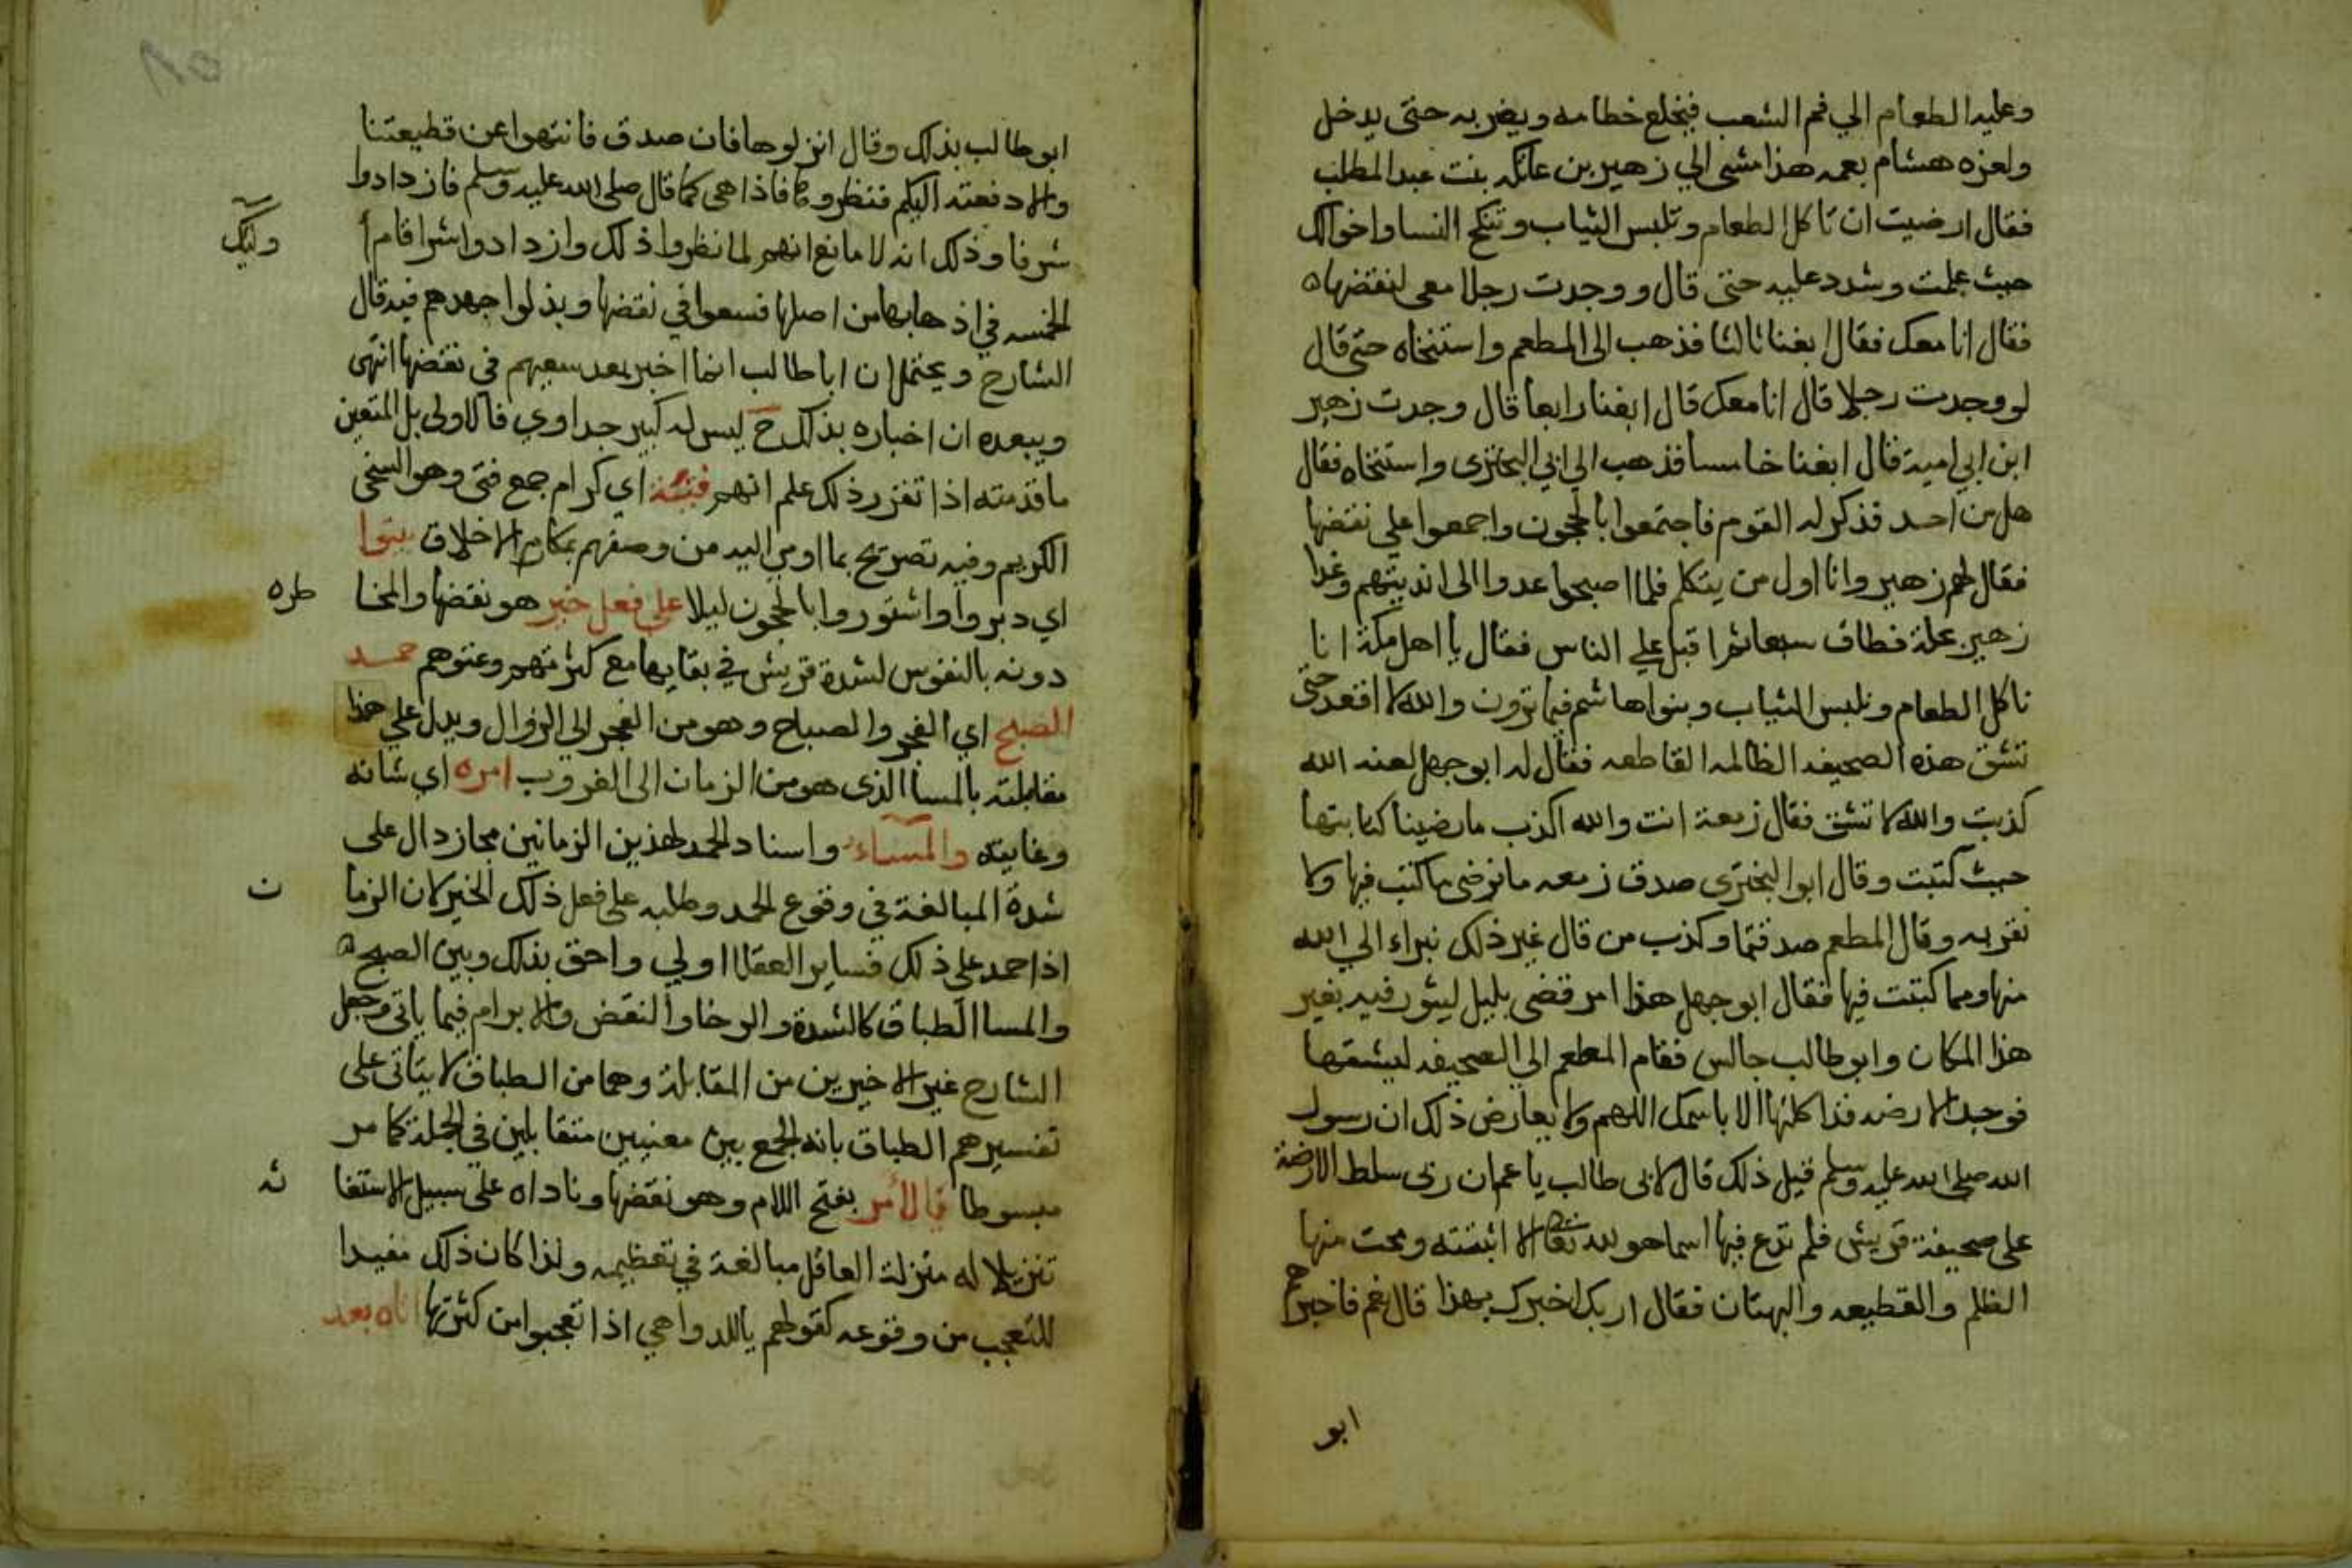 وعليه الطعام الي فم الشعب فيخلع خطامه ويضربه حتى يدخل
ولعزه هشام بعمه هذا مشى الي زهير بن عاتكه بنت عبد المطلب
فقال ارضيت ان تاكل الطعام وتلبس الثياب وتنكح النسا واخوالك
حيث علمت وشدد عليه حتى قال و وجدت رجلا معي لنقضها
فقال انا معك فقال ابغنا ثالثا فذهب الى المطعم واستنخاه حتى قال
لو وجدت رجلا قال انا معك قال ابغنا رابعا قال وجدت زهير
ابن ابي امية قال ابغنا خامسا فذهب الي ابي البختري واستنخاه فقال
هل من احد فذكر له القوم فاجتمعوا بالحجون واجمعوا علي نقضها
فقال لهم زهير وانا اول من يتكلم فلما اصبحوا عدوا الى انديتهم وغدا
زهير بحلة فطاف سبعا ثم اقبل علي الناس فقال يا اهل مكة انا
ناكل الطعام ونلبس الثياب وبنوا هاشم فيما ترون والله لا اقعد حتى
تشق هذه الصحيفه الظالمه القاطعه فقال له ابو جهل لعنه الله
كذبت والله لا تشق فقال زمعة انت والله اكذب ما رضينا كتابتها
حيث كتبت وقال ابو البختري صدق زمعه ما نرضى ما كتب فيها ولا
نقر به وقال المطعم صدقتما وكذب من قال غير ذلك نبراء الي الله
منها ومما كتبت فيها فقال ابو جهل هذا امر قضي بليل ليشور فيه بغير
هذا المكان وابو طالب جالس فقام المطعم الي الصحيفه ليشقها
فوجد الارضه قد اكلتها الا باسمك اللهم ولا يعارض ذلك ان رسول
الله صلى الله عليه وسلم قبل ذلك قال لابي طالب يا عم ان ربي سلط الارضة
على صحيفة قريش فلم تدع فيها اسما هو لله تعالى الا اثبتته ومحت منها
الظلم والقطيعه والبهتان فقال اربك اخبرك بهذا قال نعم فاخبرهم
ابو
ابو طالب بذلك وقال انزلوها فان صدق فانتهوا عن قطيعتنا
والا دفعته اليكم فنظروها فاذا هي كما قال صلى الله عليه وسلم فازدادوا
شرفا وذلك انه لا مانع انهم لما نظروا ذلك وازدادوا شرا قام
الخمسه في اذهابها من اصلها فسعوا في نقضها وبذلوا جهدهم فيه قال
الشارح ويحتمل ان ابا طالب انما اخبر بعد سعيهم في نقضها انتهى
ويبعده ان اخباره بذلك ح ليس له كبير جداوي فالاولى بل المتعين
ما قدمته اذا تقرر ذلك علم انهم فتية اي كرام جمع فتى وهو السخي
الكريم وفيه تصريح بما اومي اليه من وصفهم بمكارم الاخلاق بيتوا
اي دبروا واشتوروا بالحجون ليلا علي فعل خير هو نقضها والمخا
طره
دونه بالنفوس لشدة قريش في بقايها مع كثرتهم وعتوهم حمد
الصبح اي الفجر والصباح وهو من الفجر الى الزوال ويدل علي هذا
مقابلته بالمسا الذي هو من الزمان الى الغروب امره اي شانه
وغايته والمساء واسناد الحمد لهذين الزمانين مجاز دال على
شدة المبالغة في وقوع الحمد وطلبه على فعل ذلك الخير لان الزما
ن
اذا حمد على ذلك فساير العقلا اولي واحق بذلك وبين الصبح
والمسا الطباق كالشدة والرخا والنقض والابرام فيما ياتي وجعل
الشارح غير الاخيرين من المقابلة وهما من الطباق لا يتاتى على
تفسيرهم الطباق بانه الجمع بين معنيين متقابلين في الجملة كما مر
مبسوطا يا لأمر بفتح اللام وهو نقضها وناداه على سبيل الاستغا
ثه
تنزيلا له منزلة العاقل مبالغة في تعظيمه ولذا كان ذلك مفيدا
للتعجب من وقوعه كقولهم ياللدواهي اذا تعجبوا من كثرتها اتاه بعد